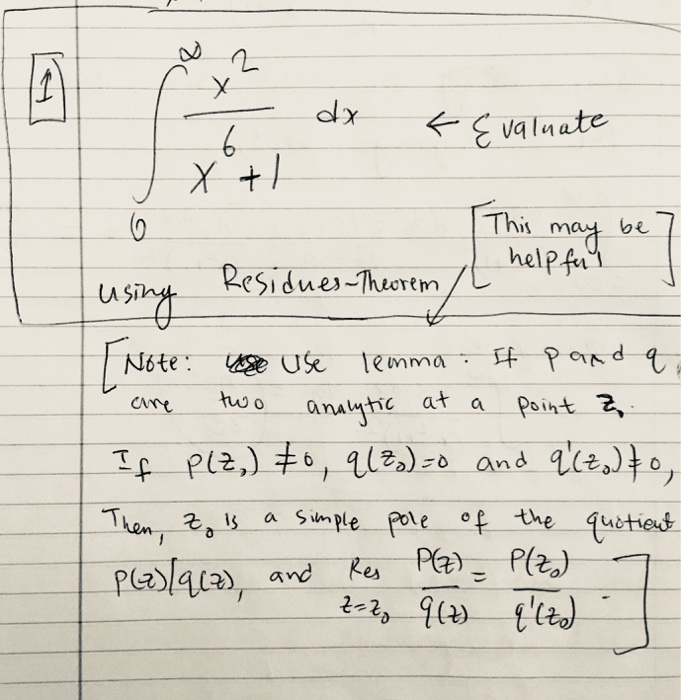 1
∫₀^∞ x²/(x⁶+1) dx ← Evaluate
using Residues-Theorem
[This may be helpful]
[Note: Use lemma: If p and q
are two analytic at a point z₀.
If p(z₀) ≠ 0, q(z₀)=0 and q'(z₀) ≠ 0,
Then, z₀ is a simple pole of the quotient
p(z)/q(z), and Res_{z=z₀} P(z)/q(z) = P(z₀)/q'(z₀).]